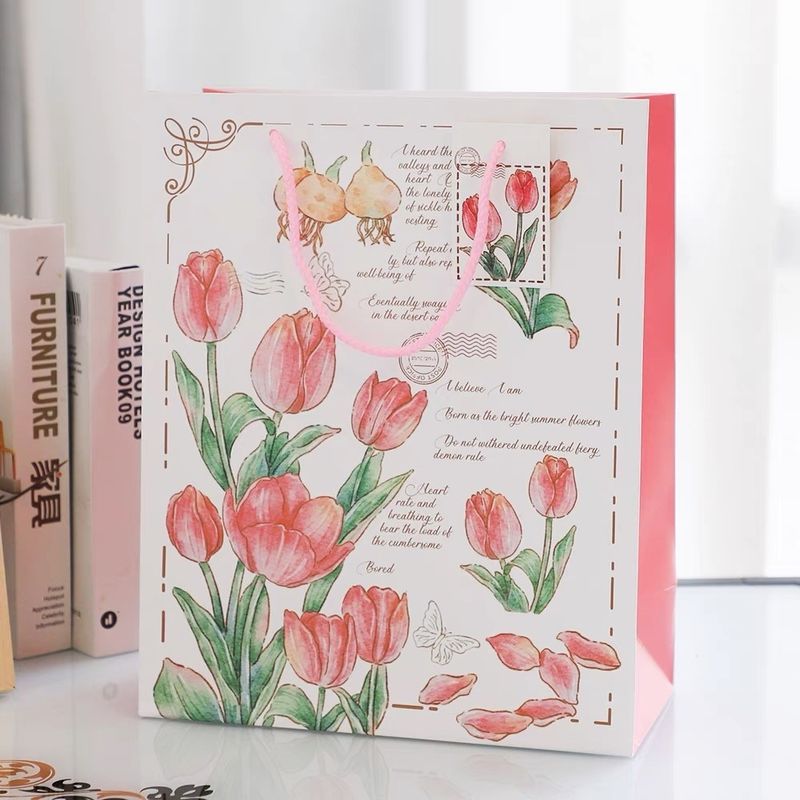 7
FURNITURE 家具
Focus
Hotspot
Appreciation
Celebrity
Information
DESIGN HOTELS
YEAR BOOK09
I heard the
valleys and
heart
the lonely
of sickle h
vesting
Repeat
ly, but also rep
well being of
Eventually sways
in the desert oa
POST OFFICE
I believe I am
Born as the bright summer flowers
Do not withered undefeated fiery
demon rule
Heart
rate and
breathing to
bear the load of
the cumbersome
Bored